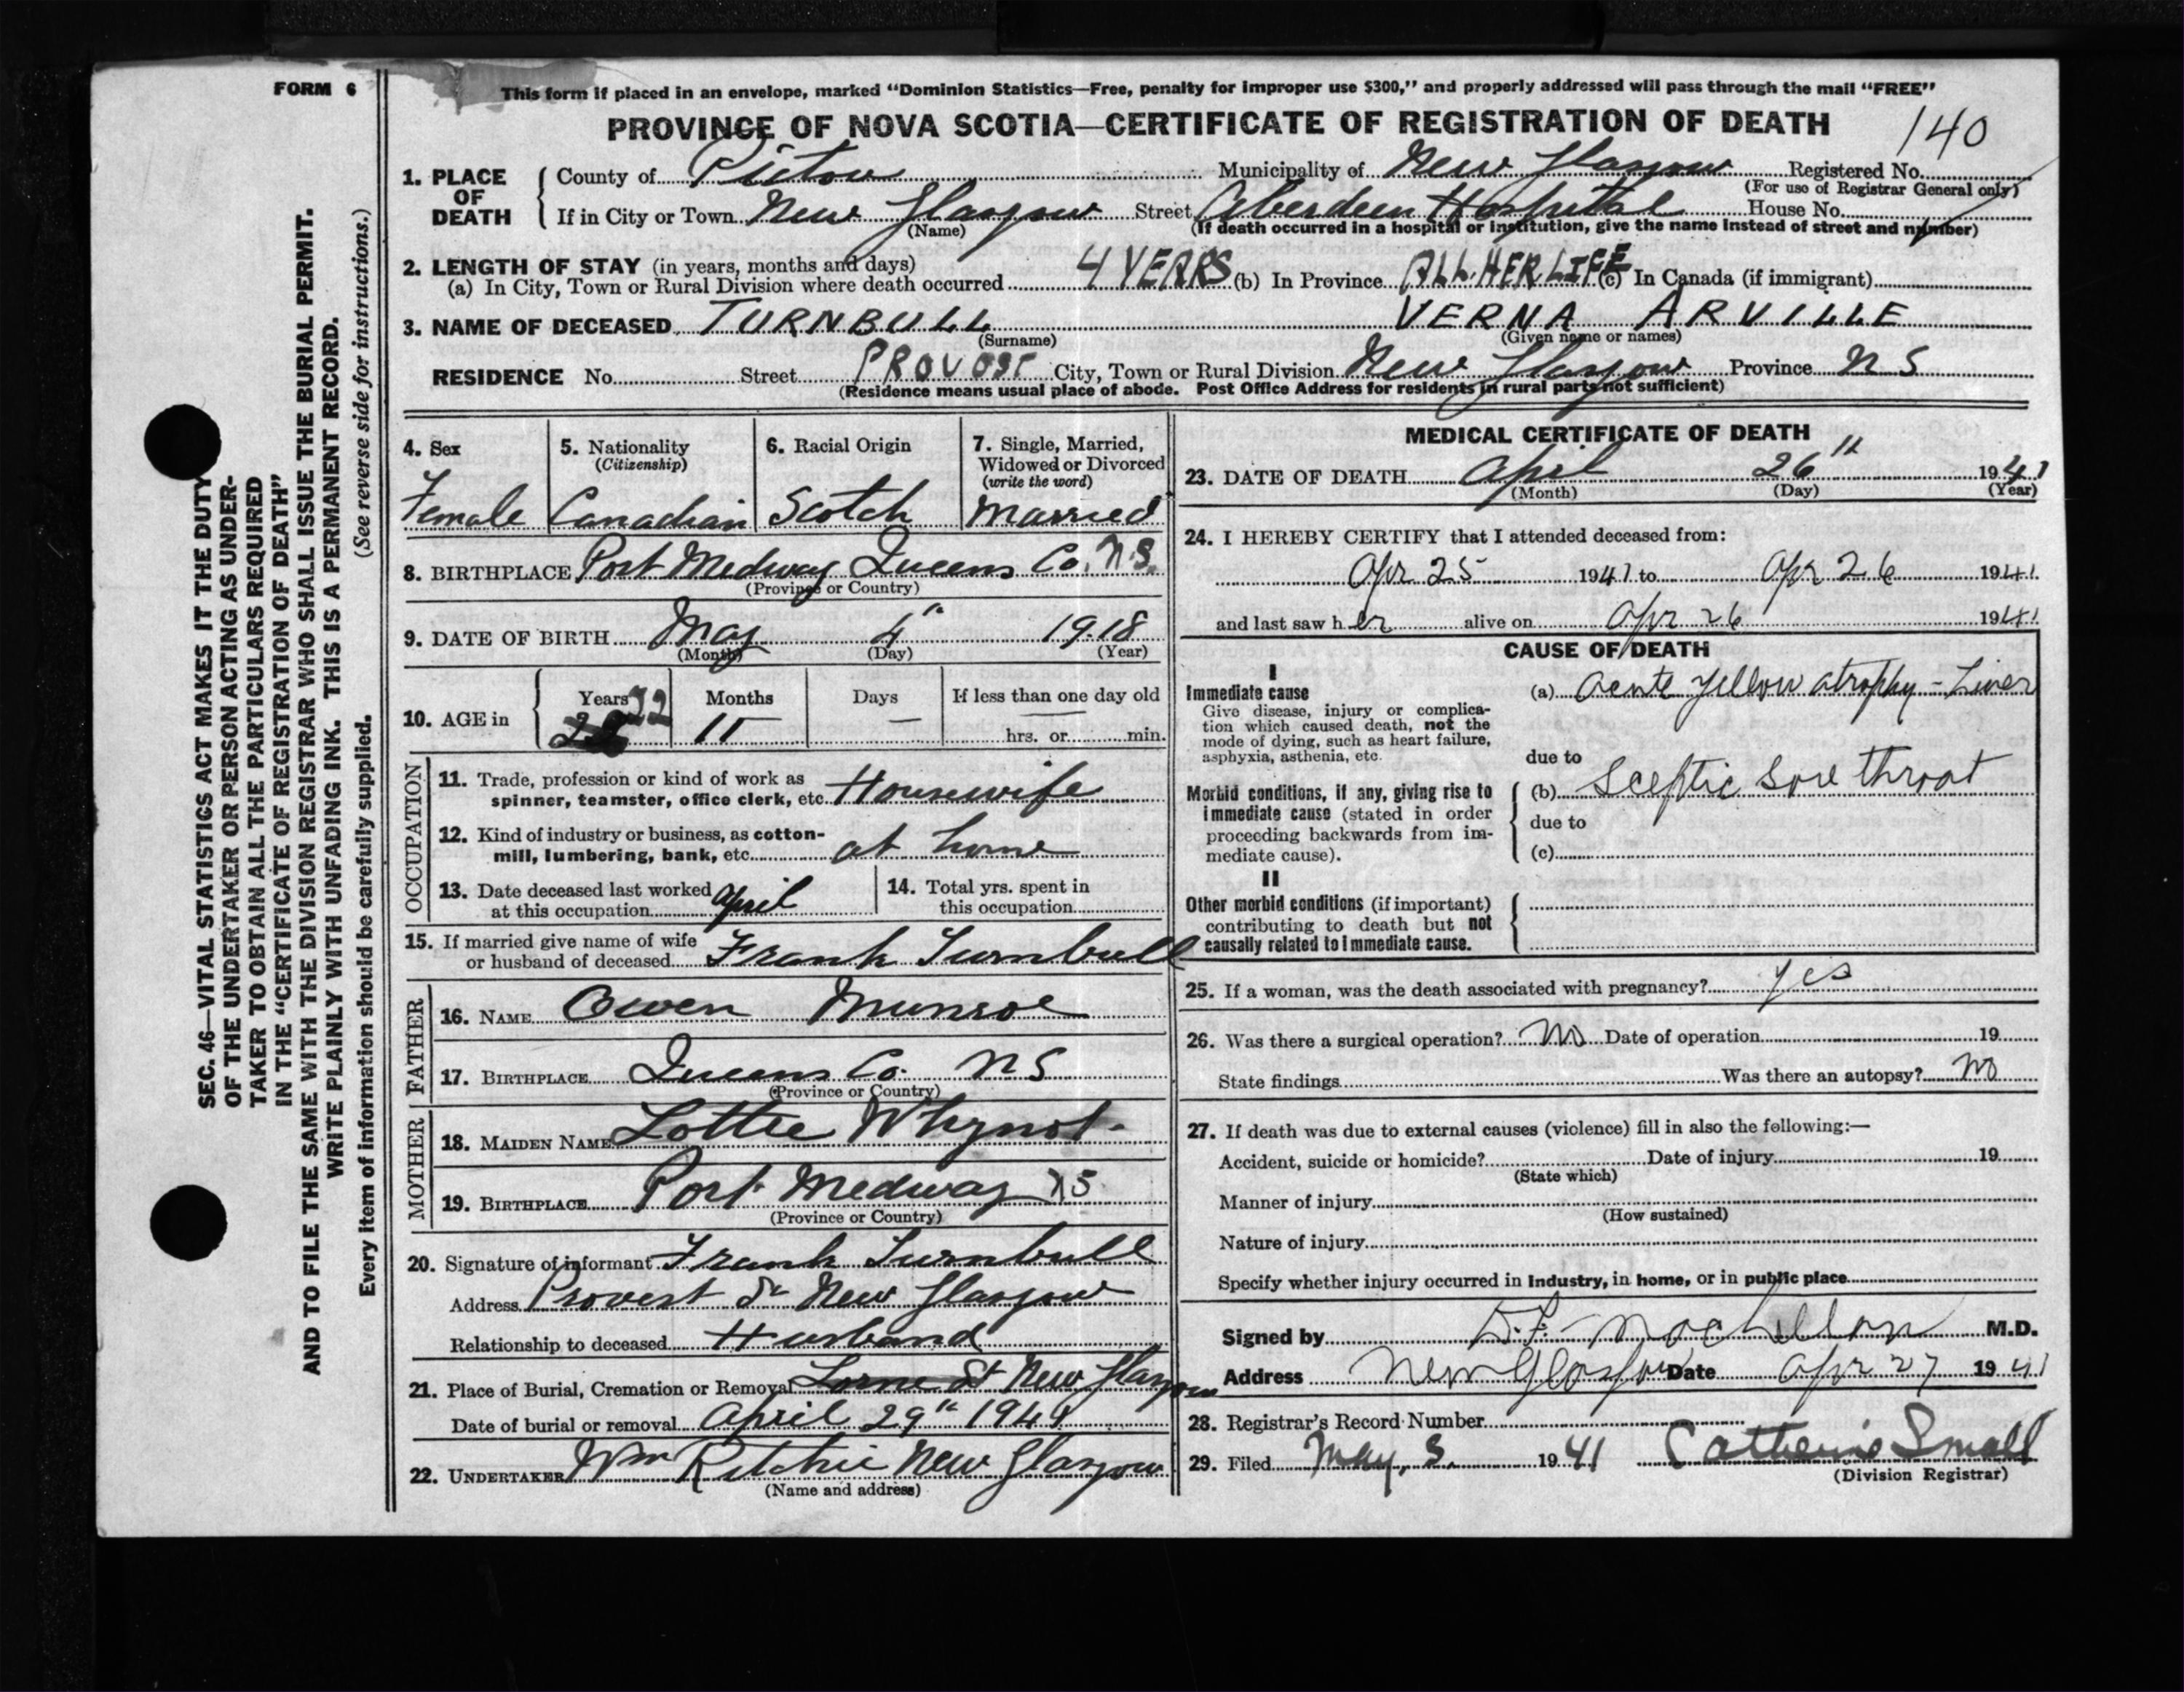 FORM 6
SEC. 46—VITAL STATISTICS ACT MAKES IT THE DUTY
OF THE UNDERTAKER OR PERSON ACTING AS UNDER-
TAKER TO OBTAIN ALL THE PARTICULARS REQUIRED
IN THE "CERTIFICATE OF REGISTRATION OF DEATH"
AND TO FILE THE SAME WITH THE DIVISION REGISTRAR WHO SHALL ISSUE THE BURIAL PERMIT.
WRITE PLAINLY WITH UNFADING INK. THIS IS A PERMANENT RECORD.
Every item of information should be carefully supplied. (See reverse side for instructions.)
This form if placed in an envelope, marked "Dominion Statistics—Free, penalty for improper use $300," and properly addressed will pass through the mail "FREE"
PROVINCE OF NOVA SCOTIA—CERTIFICATE OF REGISTRATION OF DEATH 140
1. PLACE OF DEATH County of Pictou Municipality of New Glasgow Registered No.
(For use of Registrar General only)
If in City or Town New Glasgow Street Aberdeen Hospital House No.
(Name) (If death occurred in a hospital or institution, give the name instead of street and number)
2. LENGTH OF STAY (in years, months and days)
(a) In City, Town or Rural Division where death occurred 4 YEARS (b) In Province ALL HER LIFE (c) In Canada (if immigrant)
3. NAME OF DECEASED TURNBULL VERNA ARVILLE
(Surname) (Given name or names)
RESIDENCE No. Street PROVOST City, Town or Rural Division New Glasgow Province N S
(Residence means usual place of abode. Post Office Address for residents in rural parts not sufficient)
4. Sex 5. Nationality 6. Racial Origin 7. Single, Married,
(Citizenship) Widowed or Divorced
(write the word)
Female Canadian Scotch Married
8. BIRTHPLACE Port Medway Queens Co. N.S.
(Province or Country)
9. DATE OF BIRTH May 4th 1918
(Month) (Day) (Year)
10. AGE in Years Months Days If less than one day old
22 11 — — hrs. or min.
OCCUPATION
11. Trade, profession or kind of work as
spinner, teamster, office clerk, etc. Housewife
12. Kind of industry or business, as cotton-
mill, lumbering, bank, etc. at home
13. Date deceased last worked
at this occupation April
14. Total yrs. spent in
this occupation
15. If married give name of wife
or husband of deceased Frank Turnbull
FATHER
16. NAME Owen Munroe
17. BIRTHPLACE Queens Co. N S
(Province or Country)
MOTHER
18. MAIDEN NAME Lottie Whynot
19. BIRTHPLACE Port Medway NS
(Province or Country)
20. Signature of informant Frank Turnbull
Address Provost St New Glasgow
Relationship to deceased Husband
21. Place of Burial, Cremation or Removal Lorne St New Glasgow
Date of burial or removal April 29th 1941
22. UNDERTAKER Wm Ritchie New Glasgow
(Name and address)
MEDICAL CERTIFICATE OF DEATH
23. DATE OF DEATH April 26th 1941
(Month) (Day) (Year)
24. I HEREBY CERTIFY that I attended deceased from:
Apr 25 1941 to Apr 26 1941
and last saw her alive on Apr 26 1941
CAUSE OF DEATH
I
Immediate cause
Give disease, injury or complica-
tion which caused death, not the
mode of dying, such as heart failure,
asphyxia, asthenia, etc.
(a) Acute yellow atrophy - Liver
due to
Morbid conditions, if any, giving rise to
immediate cause (stated in order
proceeding backwards from im-
mediate cause).
(b) Sceptic sore throat
due to
(c)
II
Other morbid conditions (if important)
contributing to death but not
causally related to immediate cause.
25. If a woman, was the death associated with pregnancy? yes
26. Was there a surgical operation? No Date of operation 19
State findings Was there an autopsy? No
27. If death was due to external causes (violence) fill in also the following:—
Accident, suicide or homicide? Date of injury 19
(State which)
Manner of injury
(How sustained)
Nature of injury
Specify whether injury occurred in industry, in home, or in public place
Signed by M.D.
Address New Glasgow Date Apr 27 1941
28. Registrar's Record Number
29. Filed May, 3. 1941 Catherine Small
(Division Registrar)